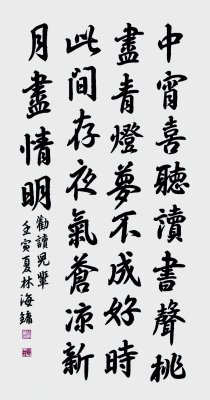 中宵喜聽讀書聲桃
盡青燈夢不成好時
此間存夜氣蒼涼新
月盡情明
勸讀兒輩
壬寅夏林海鏞